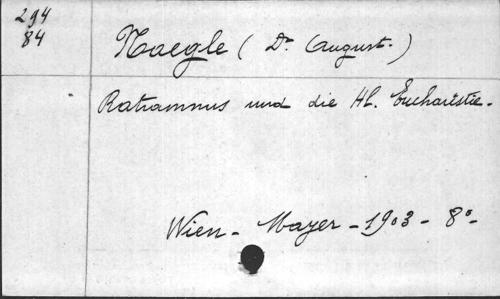 294
84
Naegle (Dr. August.)
Ratramnus und die Hl. Eucharistie.
Wien - Mayer - 1903 - 8º -